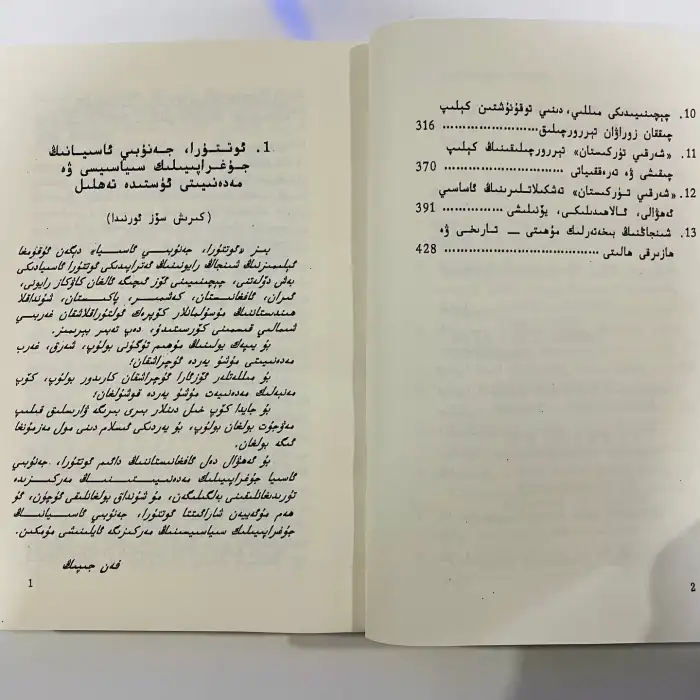 10. چېچىنىيىدىكى مىللىي، دىنىي توقۇنۇشتىن كېلىپ
چىققان زوراۋان تېررورچىلىق........................ 316
11. «شەرقىي تۈركىستان» تېررورچىلىقىنىڭ كېلىپ
چىقىشى ۋە تەرەققىياتى........................ 370
12. «شەرقىي تۈركىستان» تەشكىلاتلىرىنىڭ ئاساسىي
ئەھۋالى، ئالاھىدىلىكى، يۆنىلىشى............... 391
13. شىنجاڭنىڭ بىخەتەرلىك مۇھىتى — تارىخى ۋە
ھازىرقى ھالىتى........................ 428
2
1. ئوتتۇرا، جەنۇبىي ئاسىيانىڭ
جۇغراپىيىلىك سىياسىيسى ۋە
مەدەنىيىتى ئۈستىدە تەھلىل
(كىرىش سۆز ئورنىدا)
بىز «ئوتتۇرا، جەنۇبىي ئاسىيا» دېگەن ئۇقۇمغا
ئېلىمىزنىڭ شىنجاڭ رايونىنىڭ ئەتراپىدىكى ئوتتۇرا ئاسىيادىكى
بەش دۆلەتنى، چېچىنىيىنى ئۆز ئىچىگە ئالغان كاۋكاز رايونى،
ئىران، ئافغانىستان، كەشمىر، پاكىستان، شۇنداقلا
ھىندىستاننىڭ مۇسۇلمانلار كۆپرەك ئولتۇراقلاشقان غەربىي
شىمالىي قىسمىنى كۆرسىتىدۇ، دەپ تەبىر بېرىمىز.
بۇ يىپەك يولىنىڭ مۇھىم تۈگۈنى بولۇپ، شەرق، غەرب
مەدەنىيىتى مۇشۇ يەردە ئۇچراشقان؛
بۇ مىللەتلەر ئۆزئارا ئۇچراشقان كارىدور بولۇپ، كۆپ
مەنبەلىك مەدەنىيەت مۇشۇ يەردە قوشۇلغان؛
بۇ جايدا كۆپ خىل دىنلار بىرى بىرىگە ۋارىسلىق قىلىپ
مەۋجۇت بولغان بولۇپ، بۇ يەردىكى ئىسلام دىنى مول مەزمۇنغا
ئىگە بولغان.
بۇ ئەھۋال دەل ئافغانىستاننىڭ دائىم ئوتتۇرا، جەنۇبىي
ئاسىيا جۇغراپىيىلىك مەدەنىيىتىنىڭ مەركىزىدە
تۇرىدىغانلىقىنى بەلگىلىگەن، مۇشۇنداق بولغانلىقى ئۈچۈن، ئۇ
ھەم مۇئەييەن شارائىتتا ئوتتۇرا، جەنۇبىي ئاسىيانىڭ
جۇغراپىيىلىك سىياسىيسىنىڭ مەركىزىگە ئايلىنىشى مۇمكىن.
فەن جىپىڭ
1